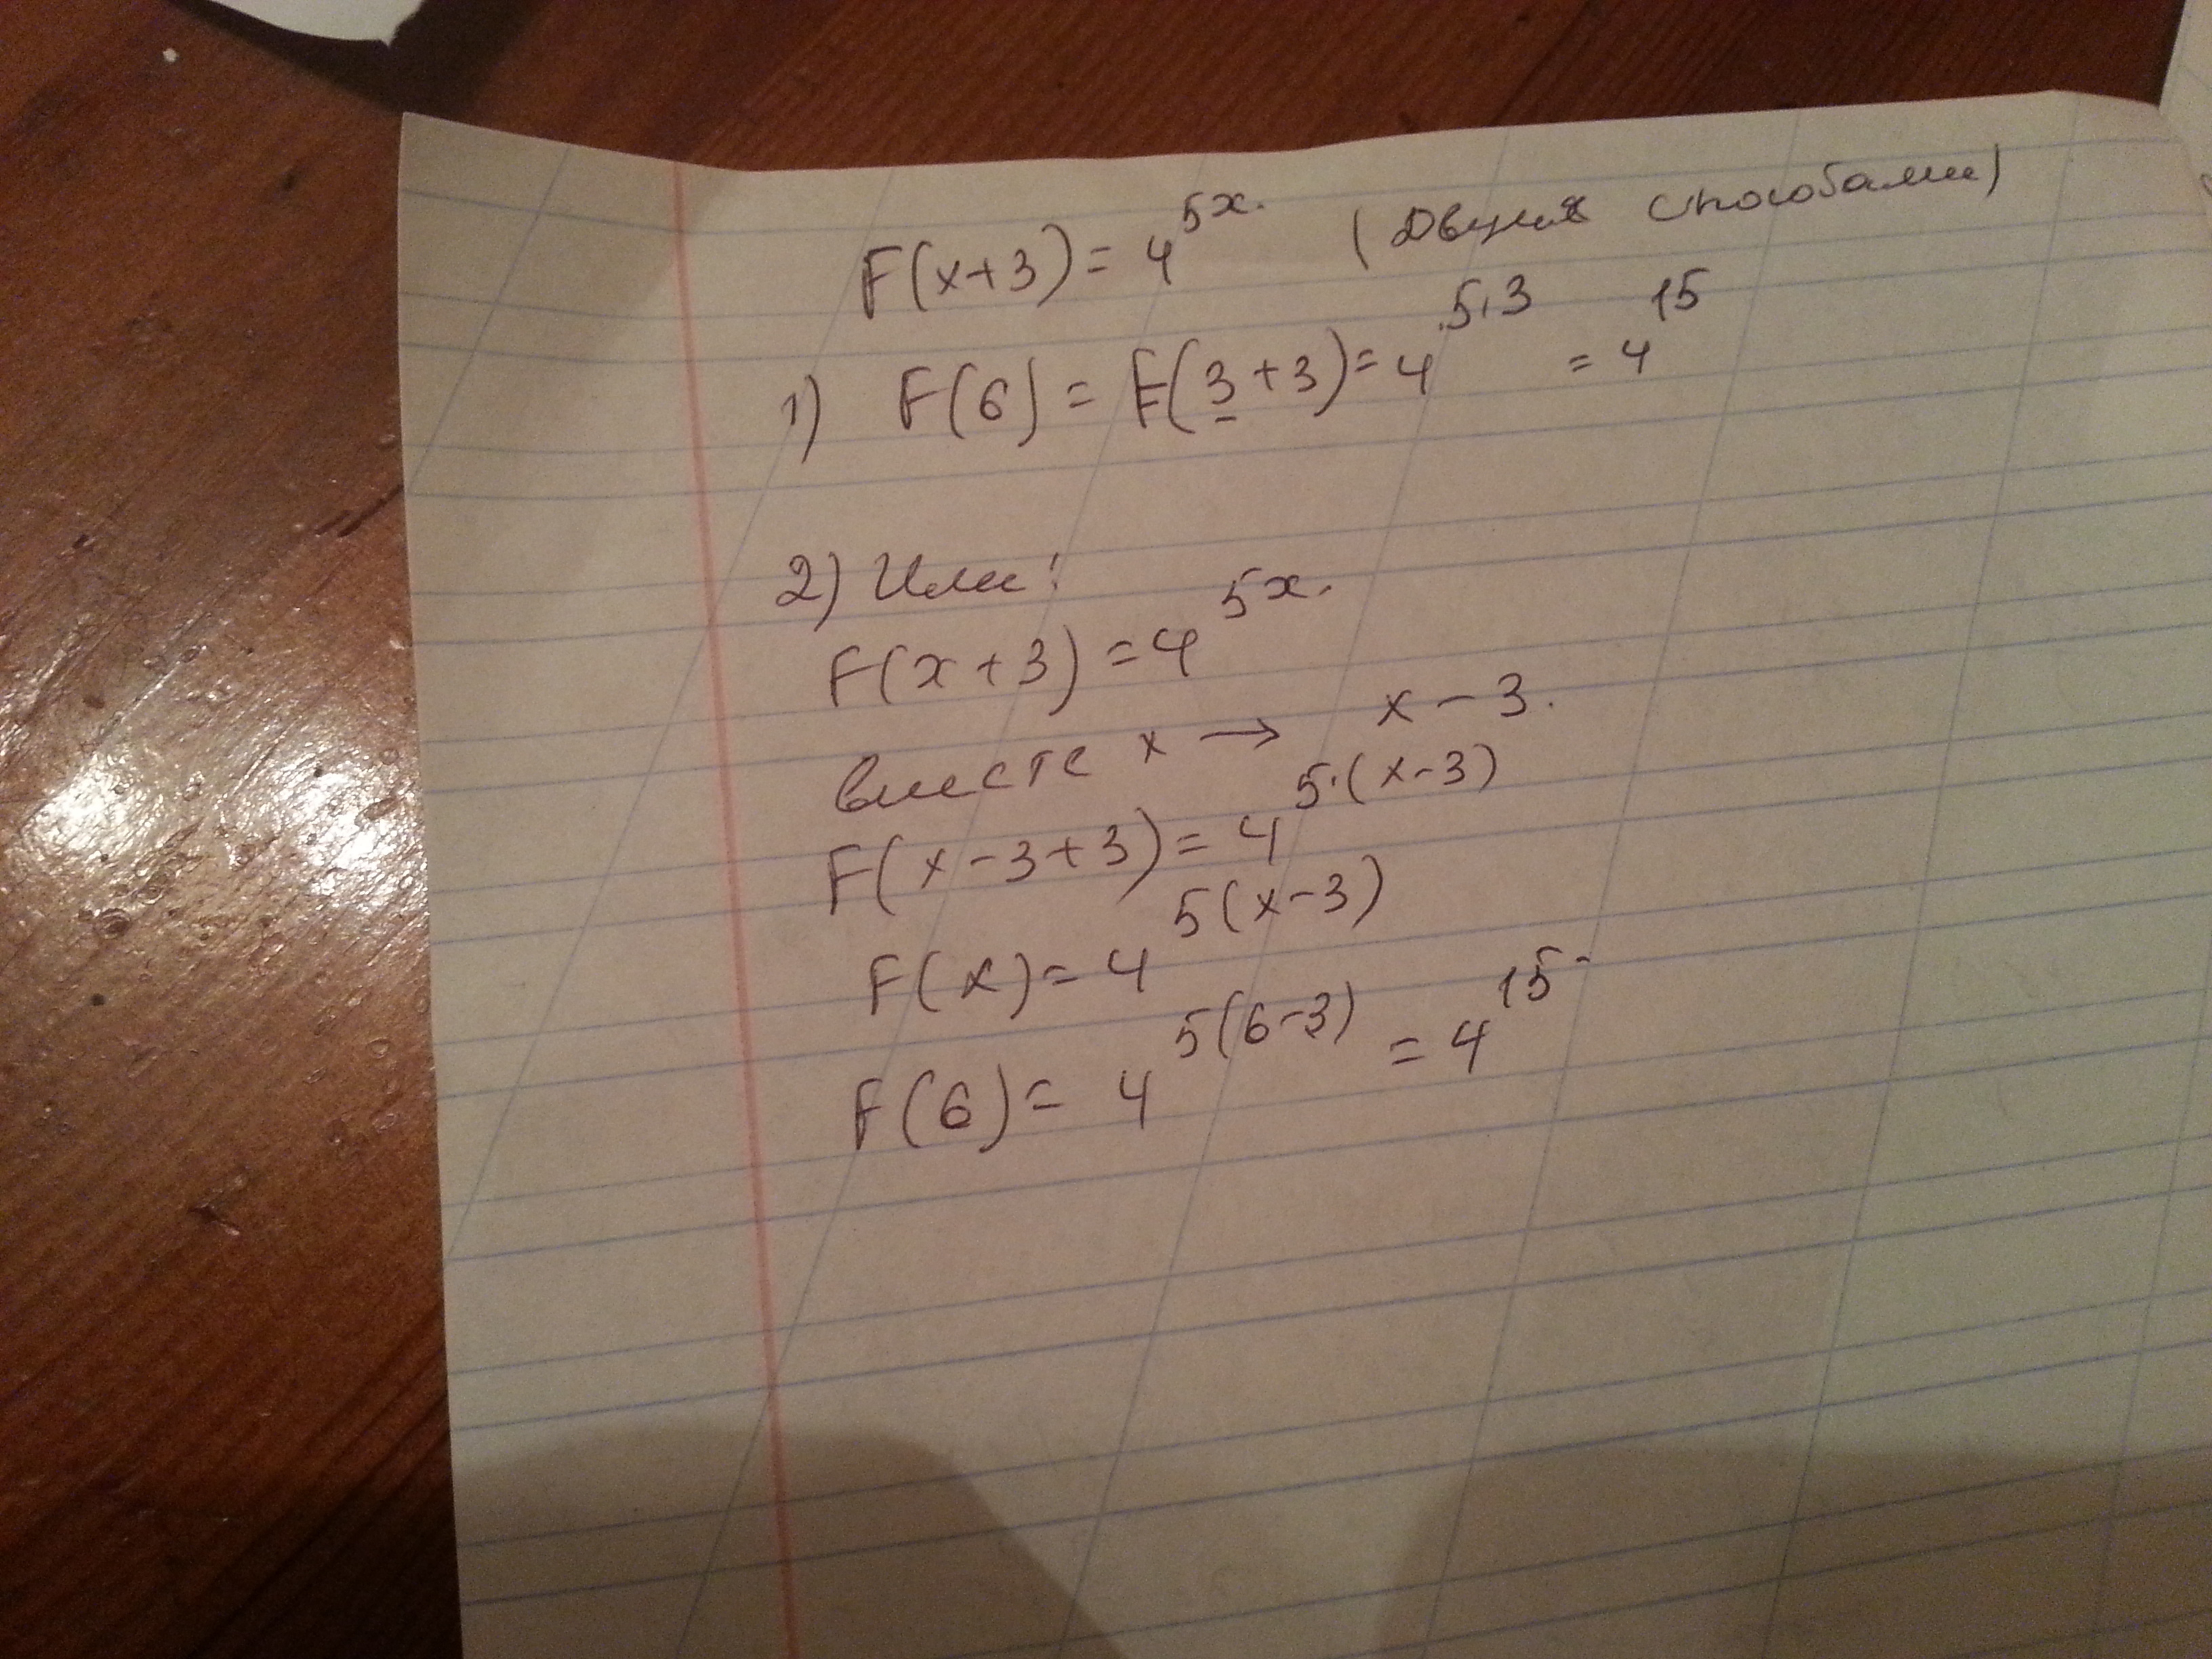 F(x+3) = 4^5x. (Двумя способами)
1) F(6) = F(3+3) = 4^5·3 = 4^15
2) Или:
F(x+3) = 4^5x.
вместе x → x-3.
F(x-3+3) = 4^5·(x-3)
F(x) = 4^5(x-3)
F(6) = 4^5(6-3) = 4^15